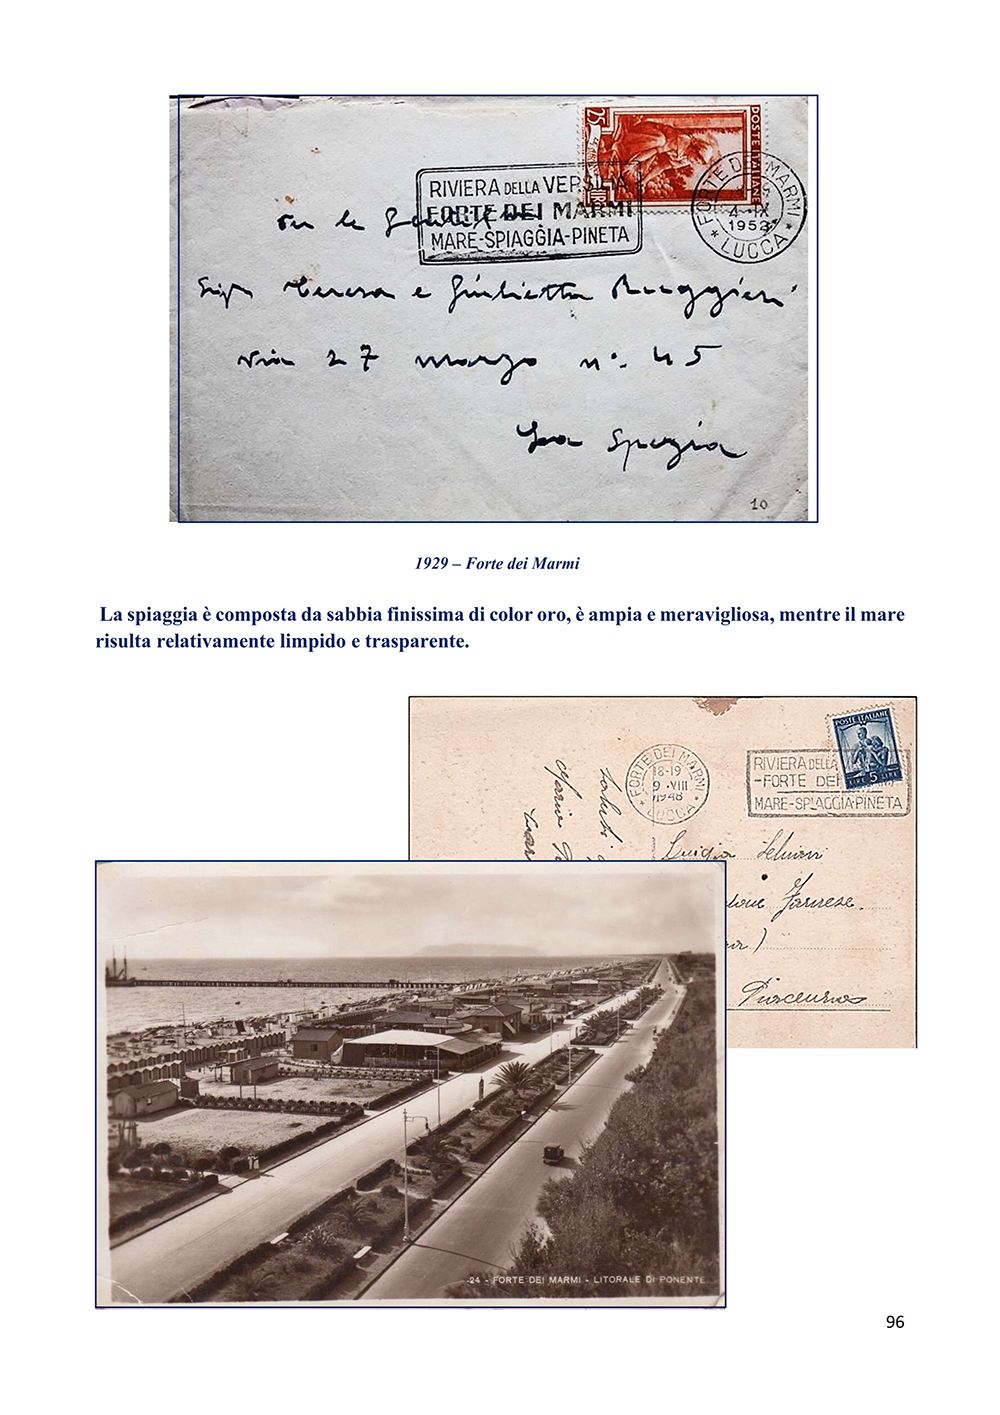 25
POSTE ITALIANE
RIVIERA DELLA VERSILIA
FORTE DEI MARMI
MARE-SPIAGGIA-PINETA
FORTE DEI MARMI
4 IX
1952
* LUCCA *
Teresa e Giulietta Ruggieri
via 27 marzo n°. 45
La Spezia
10
1929 – Forte dei Marmi
La spiaggia è composta da sabbia finissima di color oro, è ampia e meravigliosa, mentre il mare
risulta relativamente limpido e trasparente.
POSTE ITALIANE
LIRE 5 LIRE
FORTE DEI MARMI
18-19
9 VIII
1948
* LUCCA *
RIVIERA DELLA
-FORTE DEI
MARE-SPIAGGIA-PINETA
Saluti
Maria
Luigia
Farnese.
24 - FORTE DEI MARMI - LITORALE DI PONENTE
96